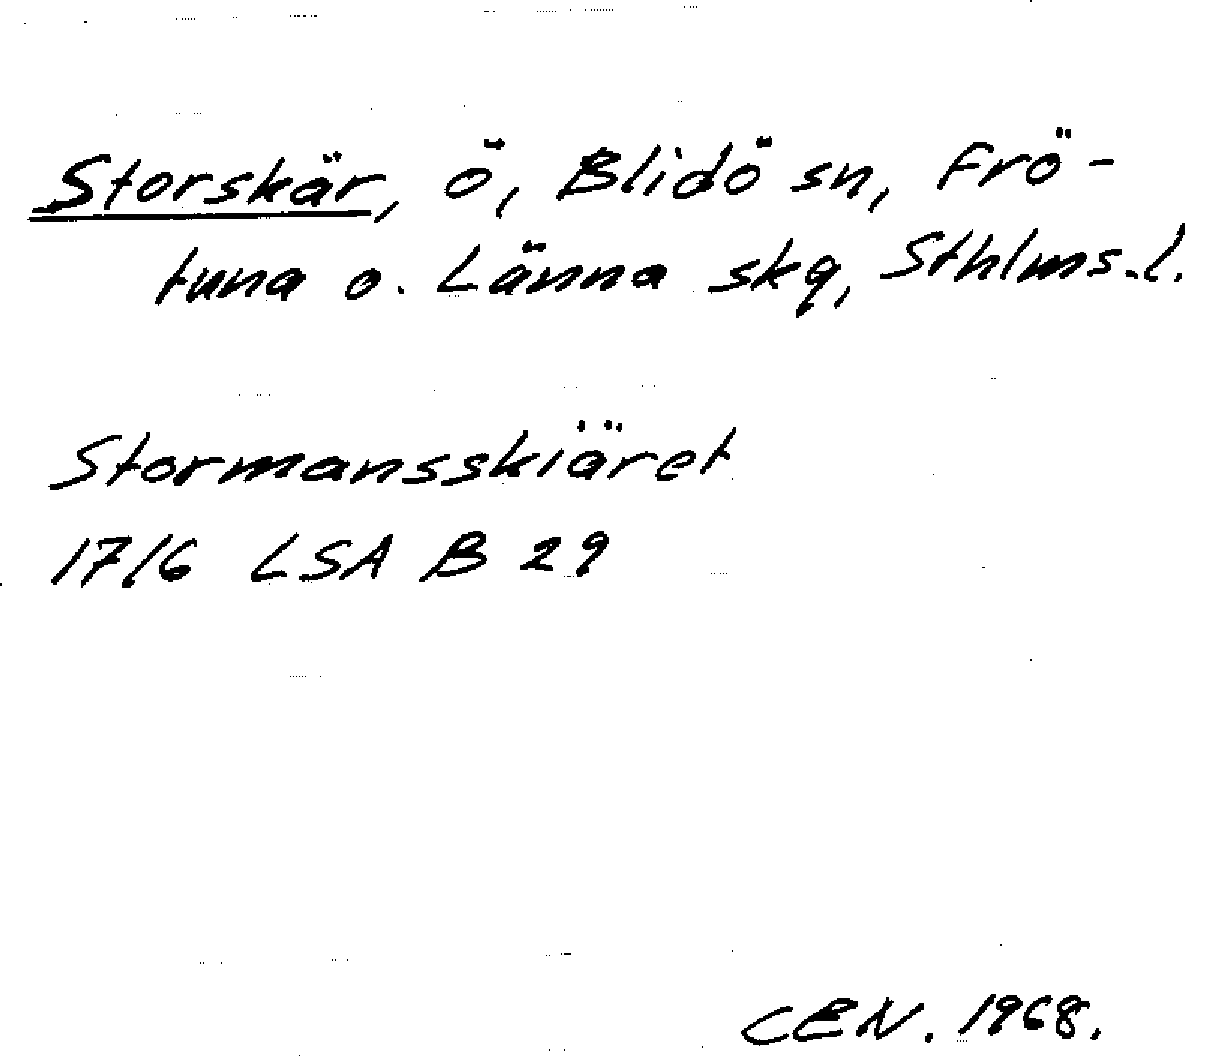 Storskär, ö, Blidö sn, Frö-
tuna o. Länna skg, Sthlms.l.
Stormansskiäret
1716 LSA B 29
CEN. 1968.